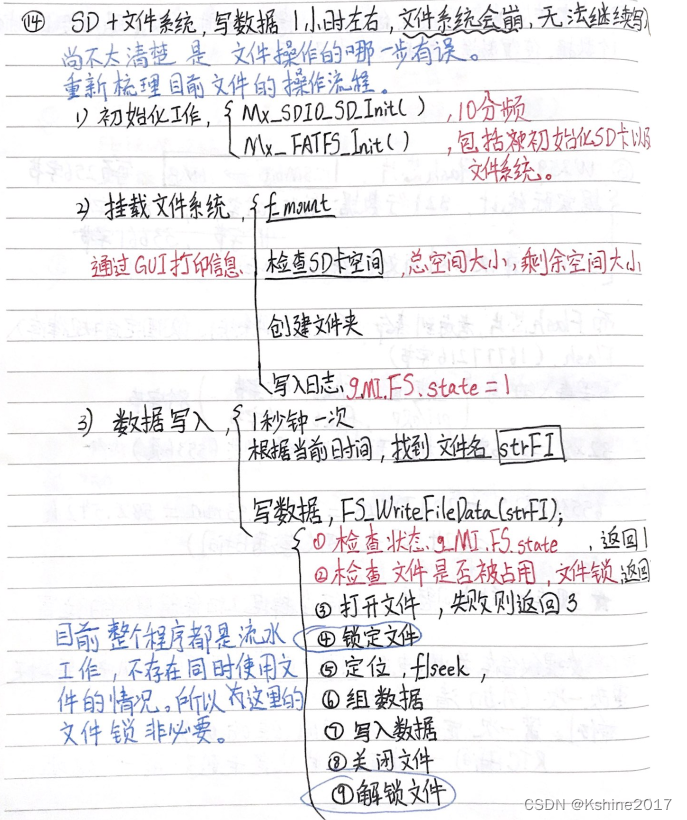 ⑭ SD+文件系统,写数据1小时左右,文件系统会崩,无法继续写
尚不太清楚是文件操作的哪一步有误。
重新梳理目前文件的操作流程。
1) 初始化工作, { Mx_SDIO_SD_Init() ,10分频
Mx_FATFS_Init() ,包括被初始化SD卡以及
文件系统。
2) 挂载文件系统, { f_mount
通过GUI打印信息. 检查SD卡空间 ,总空间大小,剩余空间大小
创建文件夹
写入日志. g_MI.FS.state=1
3) 数据写入, { 1秒钟一次
根据当前日时间,找到文件名 strFI
写数据, FS_WriteFileData(strFI);
① 检查状态. g_MI.FS.state ,返回1
② 检查文件是否被占用,文件锁,返回
③ 打开文件 ,失败则返回3
④ 锁定文件
⑤ 定位,flseek,
⑥ 组数据
⑦ 写入数据
⑧ 关闭文件
⑨ 解锁文件
目前整个程序都是流水
工作,不存在同时使用文
件的情况。所以有这里的
文件锁非必要。
CSDN @Kshine2017